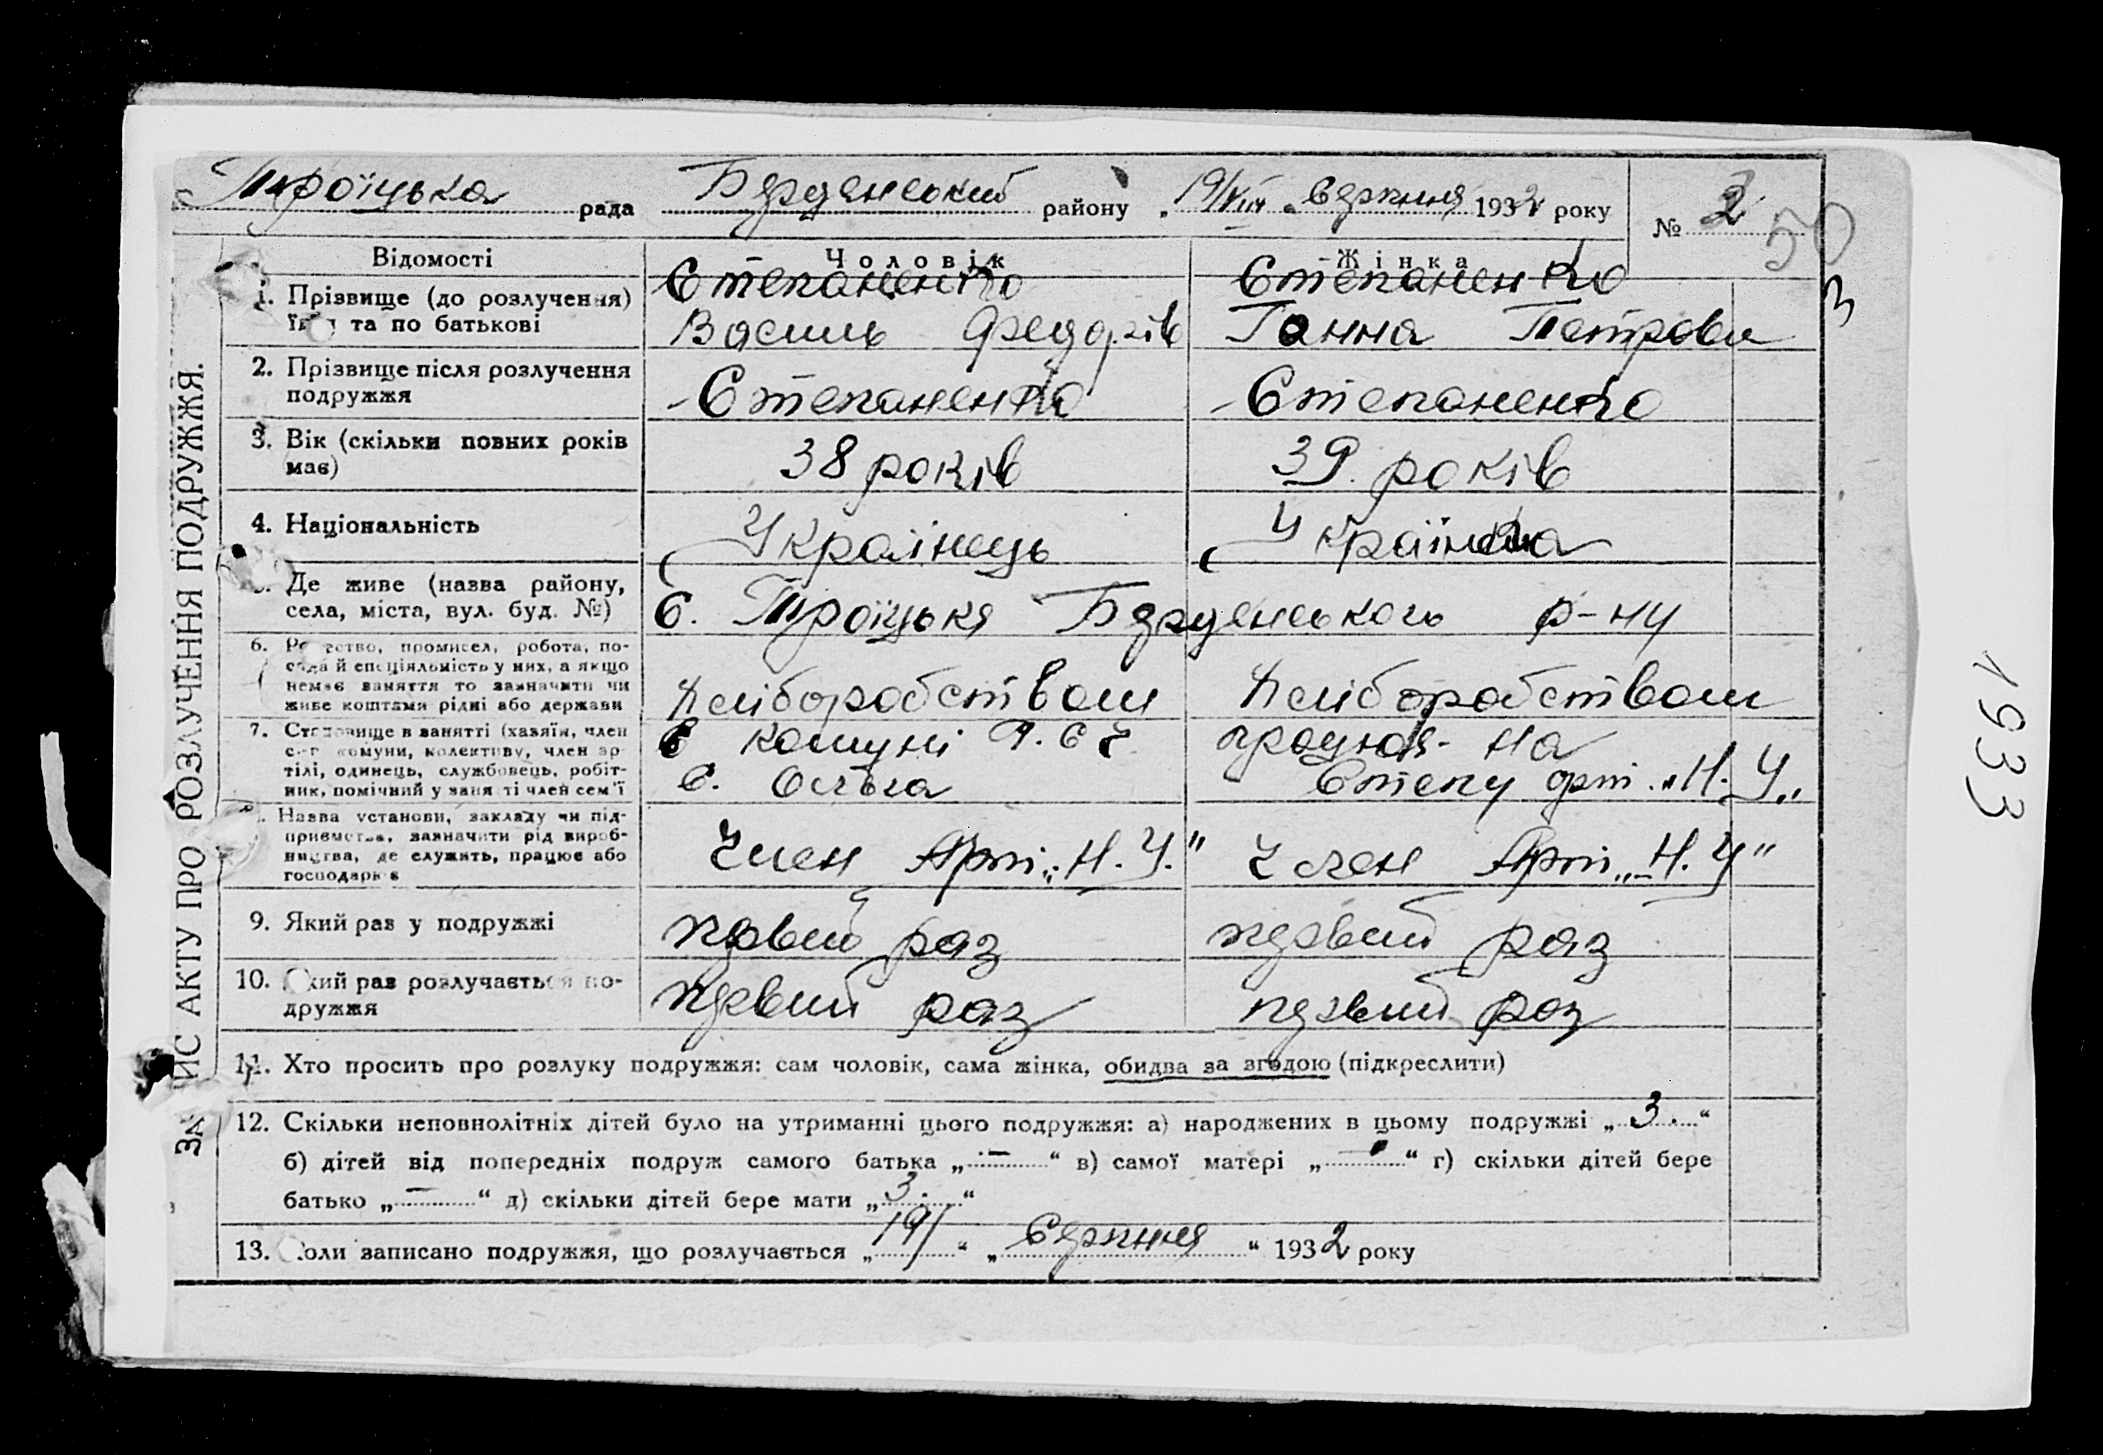 Троїцька рада Бердянський району „ 19/VIII „ серпня 1932 року № 2
50
Відомості Чоловік Жінка
3
1. Прізвище (до розлучення) Степаненко Степаненко
ім'я та по батькові Василь Федорів Ганна Петрова
2. Прізвище після розлучення
подружжя - Степаненко - Степаненко
3. Вік (скільки повних років
має) 38 років 39 років
4. Національність Українець Українка
5. Де живе (назва району,
села, міста, вул. буд. №) С. Троїцьке Бердянського р-ну
6. промисел, робота, по-
сада й спеціяльність у них, а якщо
немає заняття то зазначити чи
живе коштами рідні або держави Хліборобством Хліборобством
7. Становище в занятті (хазяїн, член
с-г комуни, колективу, член ар-
тілі, одинець, службовець, робіт-
ник, помічний у занятті член сем'ї
комуні на
с. Ольга Степу арт. „Н. У„
8. Назва установи, закладу чи під-
приємства, зазначити рід вироб-
ництва, де служить, працює або
господарює Член Арт. „Н. У." Член Арт. „Н. У"
9. Який раз у подружжі первий раз первий раз
10. Який раз розлучається по-
дружжя первий раз первий раз
11. Хто просить про розлуку подружжя: сам чоловік, сама жінка, обидва за згодою (підкреслити)
12. Скільки неповнолітніх дітей було на утриманні цього подружжя: а) народжених в цьому подружжі „ 3. “
б) дітей від попередніх подруж самого батька „ — “ в) самої матері „ — “ г) скільки дітей бере
батько „ — “ д) скільки дітей бере мати „ 3. “
13. Коли записано подружжя, що розлучається „ 19/ “ „ Серпня “ 1932 року
ЗАПИС АКТУ ПРО РОЗЛУЧЕННЯ ПОДРУЖЖЯ.
1933